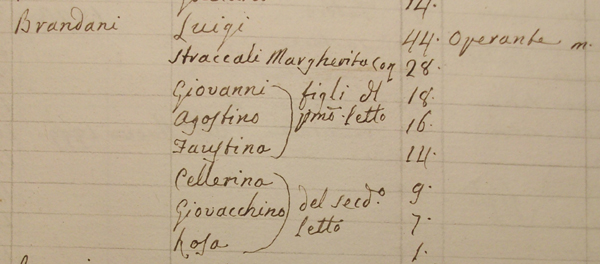 14.
Brandani Luigi 44. Operante m.
Straccali Margherita Con 28.
Giovanni figli dl 18.
Agostino pmo. letto 16.
Faustina 14.
Cellerina 9.
Giovacchino del secdo. 7.
Rosa letto 1.